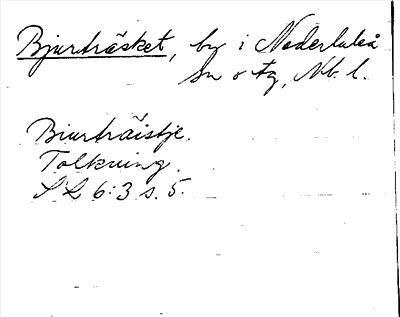 Bjurträsket, by i Nederluleå
Sn o tg, Nb. l.
Biurträistje.
Tolkning.
SL 6:3 s. 5.